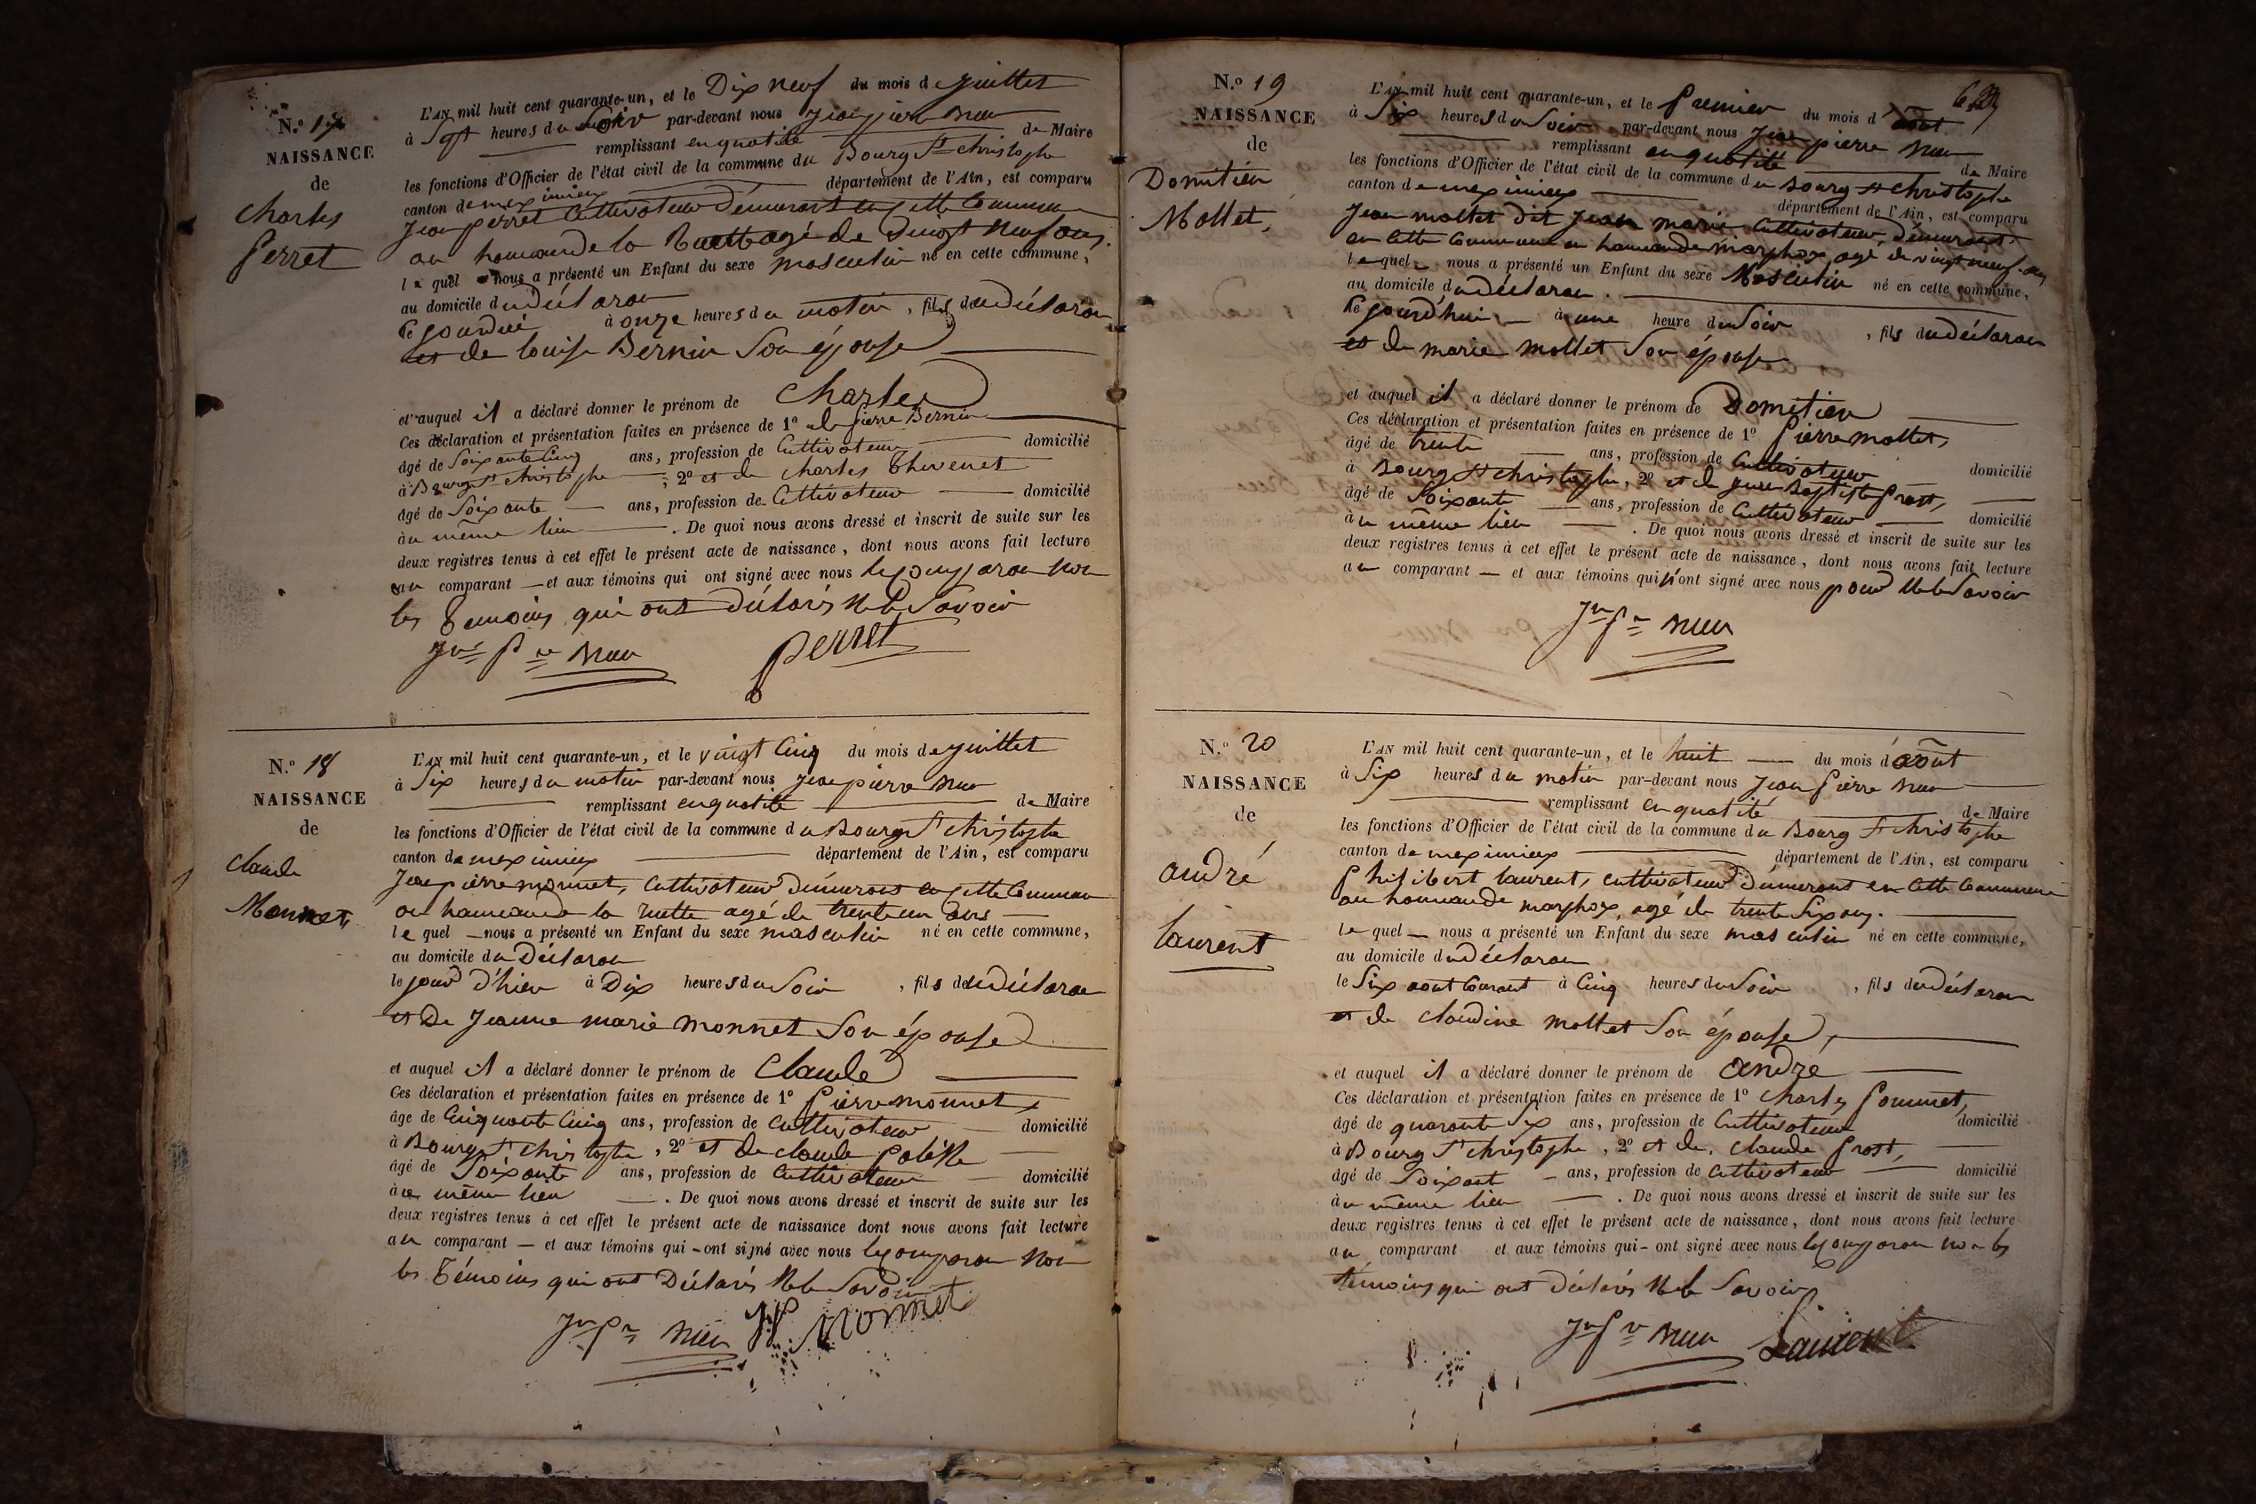 N.o 17
NAISSANCE
de
Charles
Perret
L'AN mil huit cent quarante-un, et le Dix neuf du mois de juillet
à Sept heures du Soir par-devant nous Jean pierre
remplissant en qualité de Maire
les fonctions d'Officier de l'état civil de la commune du Bourg St christophe
canton de meximieux département de l'Ain, est comparu
Jean perret Cultivateur Demeurant en cette Commune
au hameau de la Ruette agé de Vingt Neuf ans.
le quel nous a présenté un Enfant du sexe masculin né en cette commune,
au domicile du déclaran
ce jourdui à onze heures du matin, fils du déclaran
et de louise Bernin Son épouse
et auquel il a déclaré donner le prénom de Charles
Ces déclaration et présentation faites en présence de 1o de pierre Bernin
âgé de Soixante Cinq ans, profession de Cultivateur domicilié
à Bourg St christophe, 2o et de charles Thevenet
âgé de Soixante ans, profession de Cultivateur domicilié
au même lieu. De quoi nous avons dressé et inscrit de suite sur les
deux registres tenus à cet effet le présent acte de naissance, dont nous avons fait lecture
au comparant et aux témoins qui ont signé avec nous le comparan Non
les Temoins qui ont Déclarés Ne le Savoir
Perret
N.o 18
NAISSANCE
de
Claude
Monnet
L'AN mil huit cent quarante-un, et le vingt Cinq du mois de juillet
à Six heures du matin par-devant nous Jean pierre
remplissant en qualité de Maire
les fonctions d'Officier de l'état civil de la commune du Bourg St christophe
canton de meximieux département de l'Ain, est comparu
Jean pierre monnet, Cultivateur Demeurant en cette Commune
au hameau de la ruette agé de trente un ans
le quel nous a présenté un Enfant du sexe masculin né en cette commune,
au domicile du Déclaran
le jour d'hier à Dix heures du Soir, fils du déclaran
et De Jeanne marie monnet Son épouse
et auquel il a déclaré donner le prénom de Claude
Ces déclaration et présentation faites en présence de 1o pierre monnet
âgé de Cinquante Cinq ans, profession de Cultivateur domicilié
à Bourg St christophe, 2o et de claude
âgé de Soixante ans, profession de Cultivateur domicilié
au même lieu. De quoi nous avons dressé et inscrit de suite sur les
deux registres tenus à cet effet le présent acte de naissance dont nous avons fait lecture
au comparant et aux témoins qui ont signé avec nous le comparan Non
les Témoins qui ont Déclarés Ne le Savoir
JP Monnet
N.o 19
NAISSANCE
de
Domitien
Mollet,
L'AN mil huit cent quarante-un, et le premier du mois d'août
à Six heures du Soir par-devant nous Jean pierre
remplissant en qualité de Maire
les fonctions d'Officier de l'état civil de la commune du Bourg St christophe
canton de meximieux département de l'Ain, est comparu
Jean mollet dit Jean marie Cultivateur, demeurant
en cette Commune au hameau de marphoz agé de vingt neuf ans
le quel nous a présenté un Enfant du sexe Masculin né en cette commune,
au domicile du déclaran.
ce jourd'hui à une heure du Soir, fils du déclaran
et de marie mollet Son épouse
et auquel il a déclaré donner le prénom de Domitien
Ces déclaration et présentation faites en présence de 1o Pierre mollet,
âgé de trente ans, profession de Cultivateur domicilié
à Bourg St christophe, 2o et de jean Baptiste prost,
âgé de Soixante ans, profession de Cultivateur domicilié
au même lieu. De quoi nous avons dressé et inscrit de suite sur les
deux registres tenus à cet effet le présent acte de naissance, dont nous avons fait lecture
au comparant et aux témoins qui n'ont signé avec nous pour Ne le Savoir
N.o 20
NAISSANCE
de
andré
laurent
L'AN mil huit cent quarante-un, et le huit du mois d'août
à Six heures du matin par-devant nous Jean Pierre
remplissant en qualité de Maire
les fonctions d'Officier de l'état civil de la commune du Bourg St christophe
canton de meximieux département de l'Ain, est comparu
Philibert laurent, cultivateur demeurant en cette Commune
au hameau de marphoz, agé de trente Six ans.
le quel nous a présenté un Enfant du sexe masculin né en cette commune,
au domicile du déclaran
le Six aout Courant à Cinq heures du Soir, fils du déclaran
et de claudine mollet Son épouse,
et auquel il a déclaré donner le prénom de andré
Ces déclaration et présentation faites en présence de 1o charles pommet,
âgé de quarante Six ans, profession de Cultivateur domicilié
à Bourg St christophe, 2o et de claude prost,
âgé de Soixant ans, profession de Cultivateur domicilié
au même lieu. De quoi nous avons dressé et inscrit de suite sur les
deux registres tenus à cet effet le présent acte de naissance, dont nous avons fait lecture
au comparant et aux témoins qui ont signé avec nous le comparan non les
témoins qui ont déclarés Ne le Savoir
Laurent